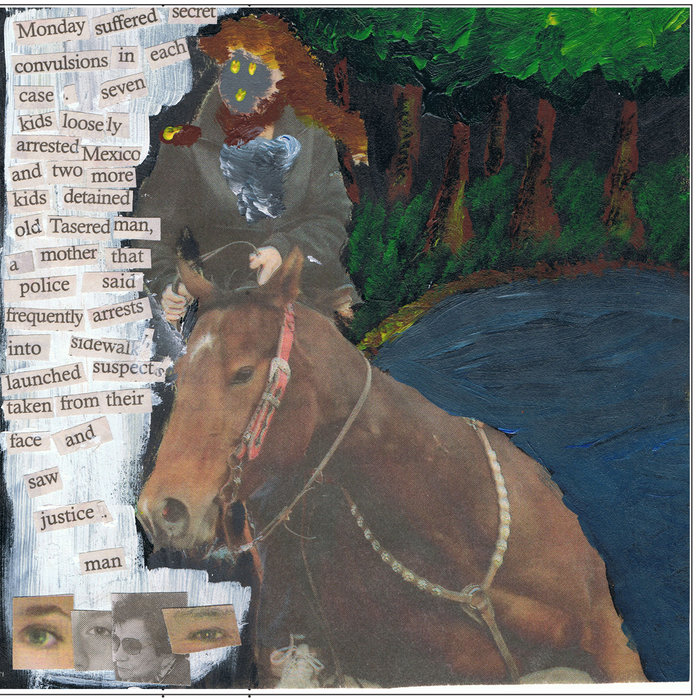 Monday suffered secret
convulsions in each
case . seven
kids loosely
arrested Mexico
and two more
kids detained
old Tasered man,
a mother that
police said
frequently arrests
into sidewalk
launched suspects
taken from their
face and
saw
justice .
man